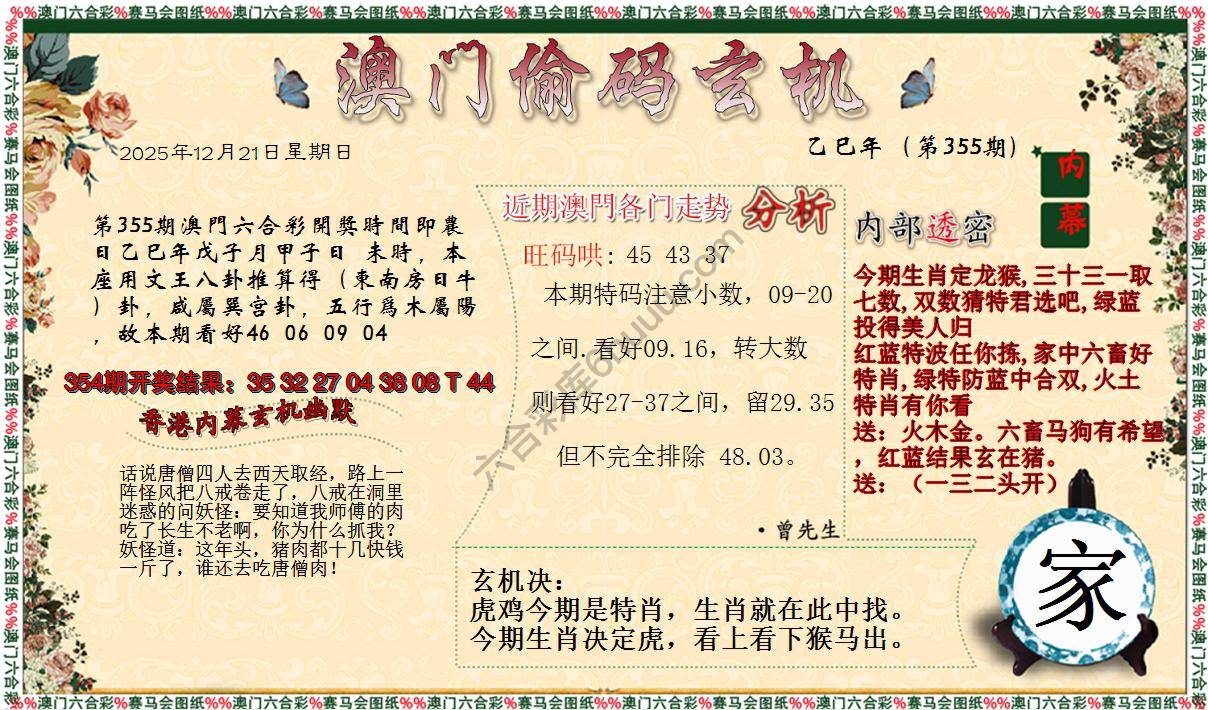 %%澳门六合彩%赛马会图纸%%澳门六合彩%赛马会图纸%%澳门六合彩%赛马会图纸%%澳门六合彩%赛马会图纸%%澳门六合彩%赛马会图纸%%
澳门偷码玄机
2025年12月21日星期日
乙巳年（第355期）
内幕
第355期澳門六合彩開獎時間即農
日乙巳年戊子月甲子日 未時，本
座用文王八卦推算得（東南房日牛
）卦，咸屬巽宫卦，五行爲木屬陽
，故本期看好46 06 09 04
354期开奖结果：35 32 27 04 38 08 T 44
香港内幕玄机幽默
话说唐僧四人去西天取经，路上一
阵怪风把八戒卷走了，八戒在洞里
迷惑的问妖怪：要知道我师傅的肉
吃了长生不老啊，你为什么抓我？
妖怪道：这年头，猪肉都十几快钱
一斤了，谁还去吃唐僧肉！
近期澳門各门走势 分析
旺码哄: 45 43 37
本期特码注意小数，09-20
之间.看好09.16，转大数
则看好27-37之间，留29.35
但不完全排除 48.03。
·曾先生
内部透密
今期生肖定龙猴,三十三一取
七数,双数猜特君选吧,绿蓝
投得美人归
红蓝特波任你拣,家中六畜好
特肖,绿特防蓝中合双,火土
特肖有你看
送：火木金。六畜马狗有希望
，红蓝结果玄在猪。
送：（一三二头开）
玄机决：
虎鸡今期是特肖，生肖就在此中找。
今期生肖决定虎，看上看下猴马出。
家